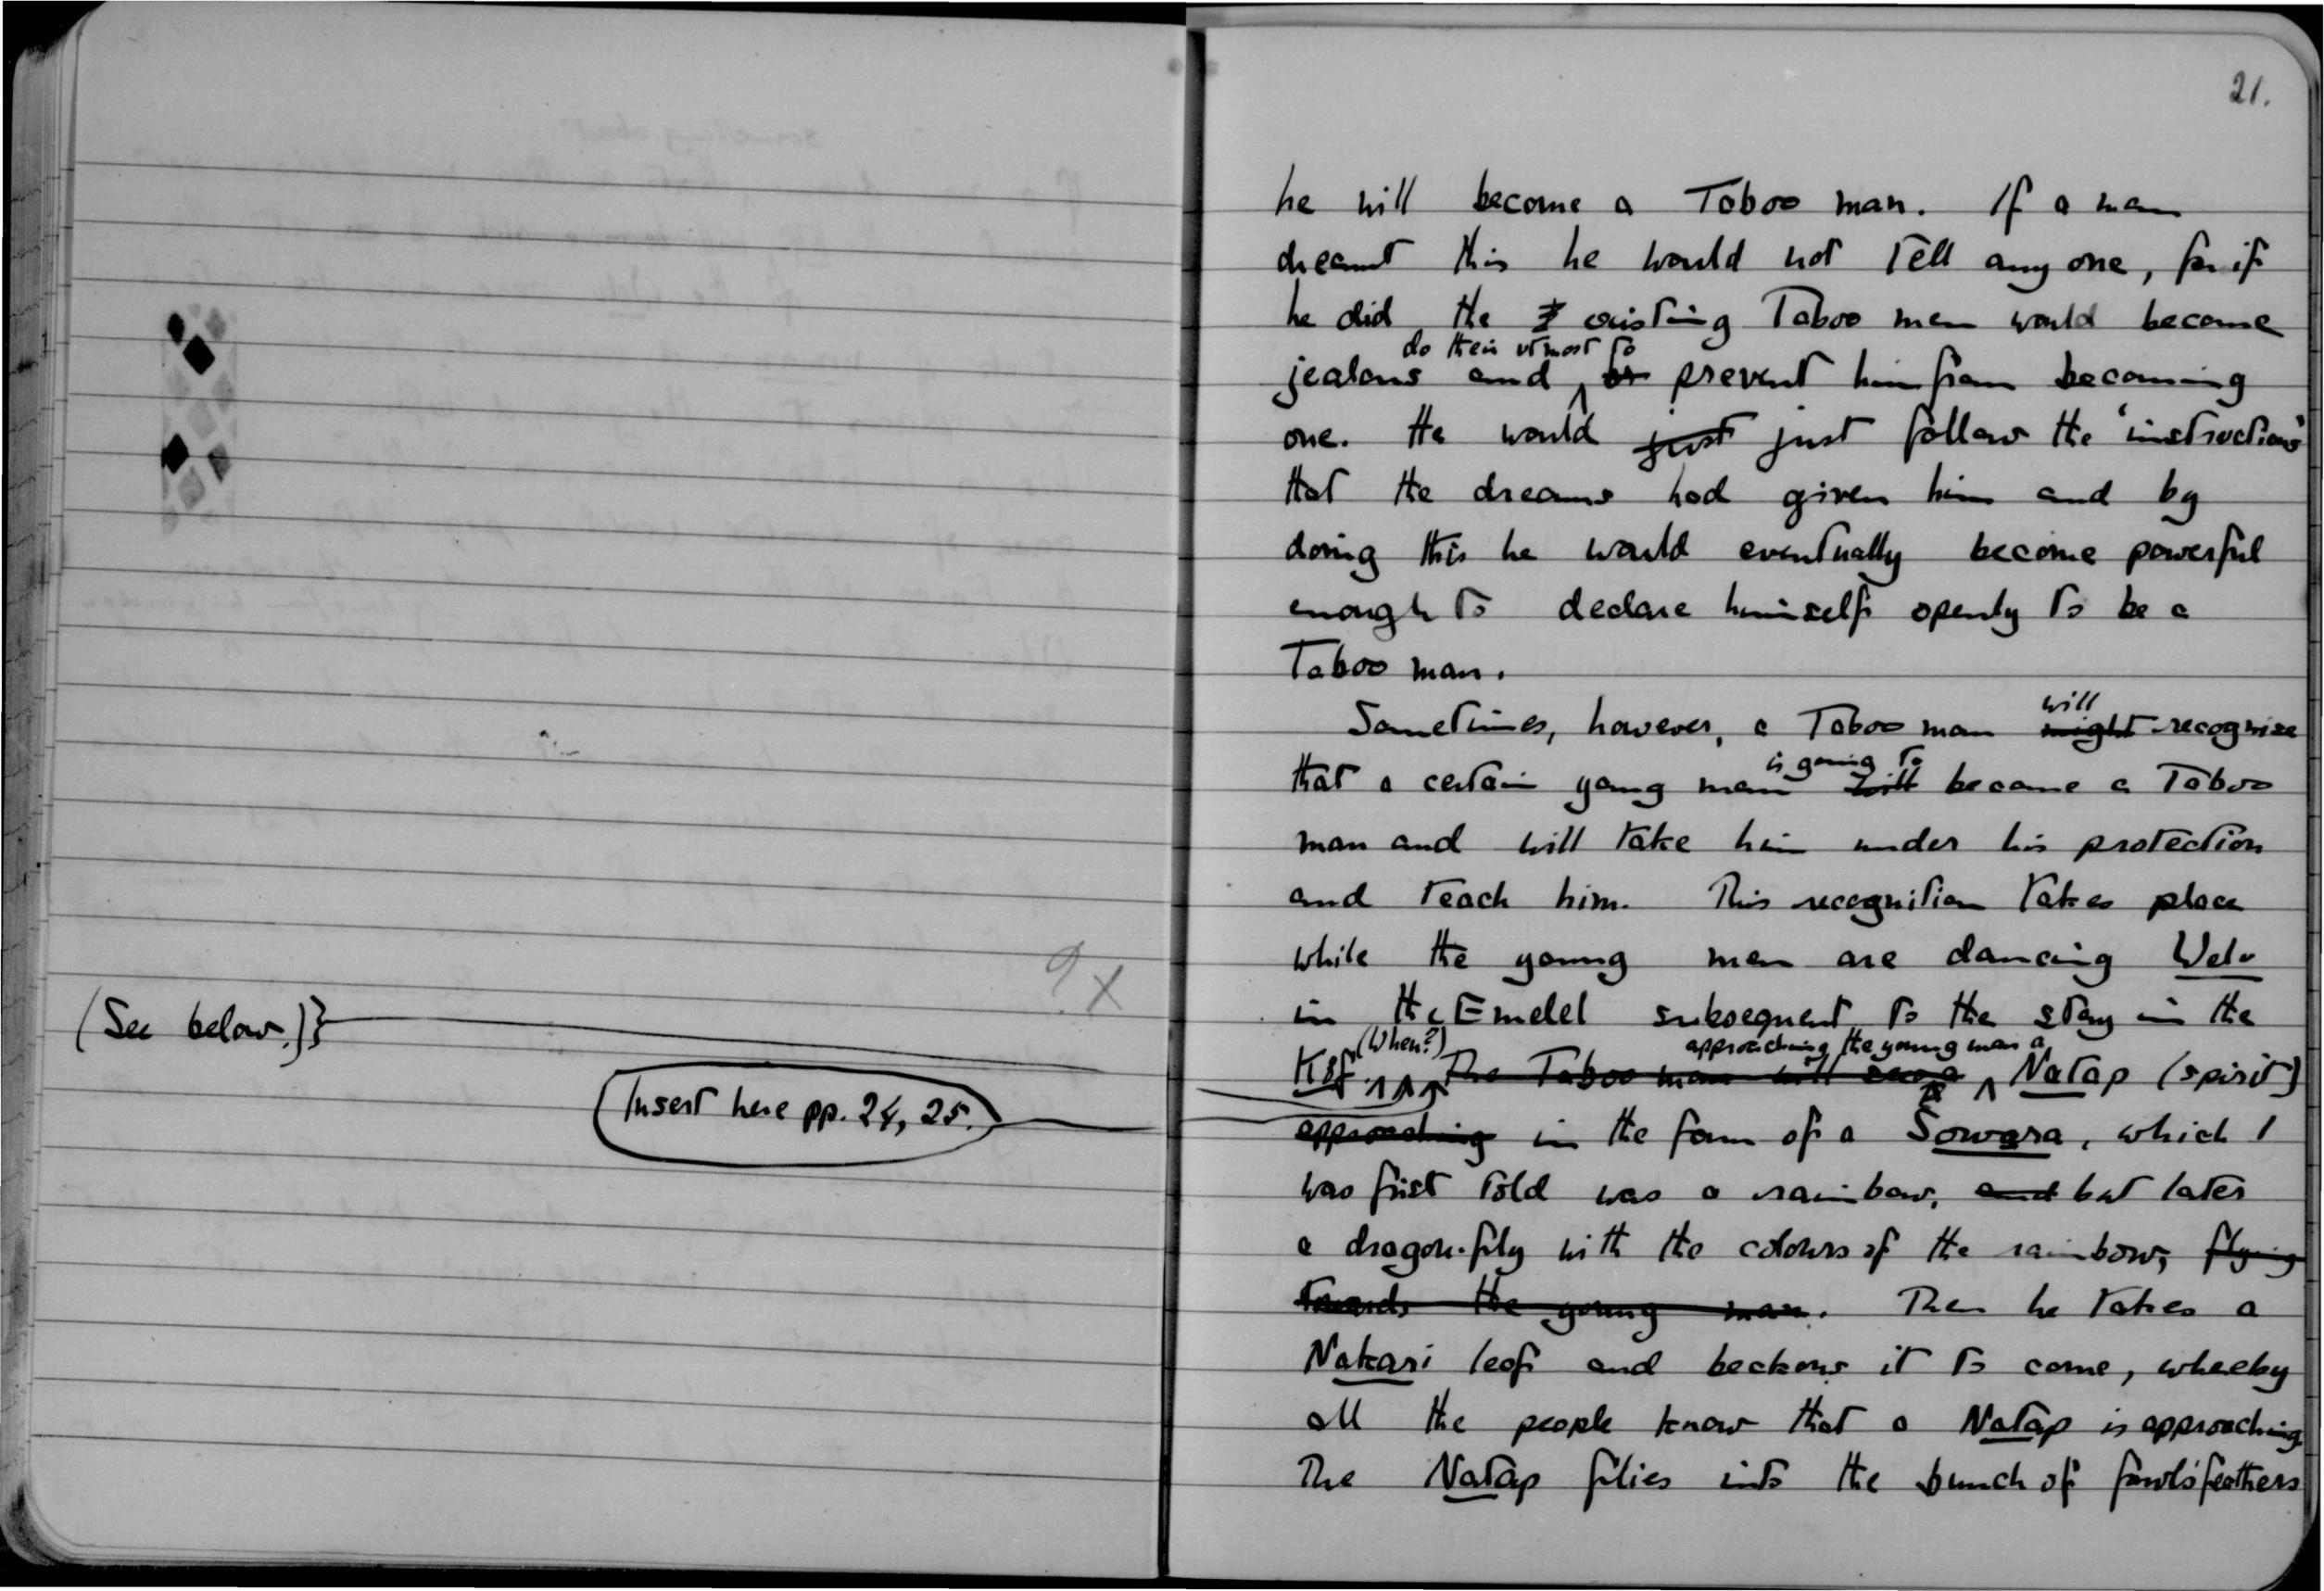 (See below.)}
Insert here pp. 24, 25.
? X
21.
he will become a Taboo man. If a man
dreamt this he would not tell any one, for if
he did the existing Taboo men would become
do their utmost to
jealous and ʌ or prevent him from becoming
one. He would just just follow the 'instructions'
that the dreams had given him and by
doing this he would eventually become powerful
enough to declare himself openly to be a
Taboo man.
will
Sometimes, however, a Taboo man might recognise
is going to
that a certain young man will become a Taboo
man and will take him under his protection
and teach him. This recognition takes place
while the young men are dancing Welu
in the Emelel subsequent to the stay in the
(When?) approaching the young man a
Kef. ʌʌʌ The Taboo man will see a ʌ Natap (spirit)
approaching in the form of a Sowara, which I
was first told was a rainbow, and but later
a dragon-fly with the colours of the rainbow, flying
towards the young man. Then he takes a
Nakari leaf and beckons it to come, wheeby
all the people know that a Natap is approaching
The Natap flies into the bunch of fowls' feathers